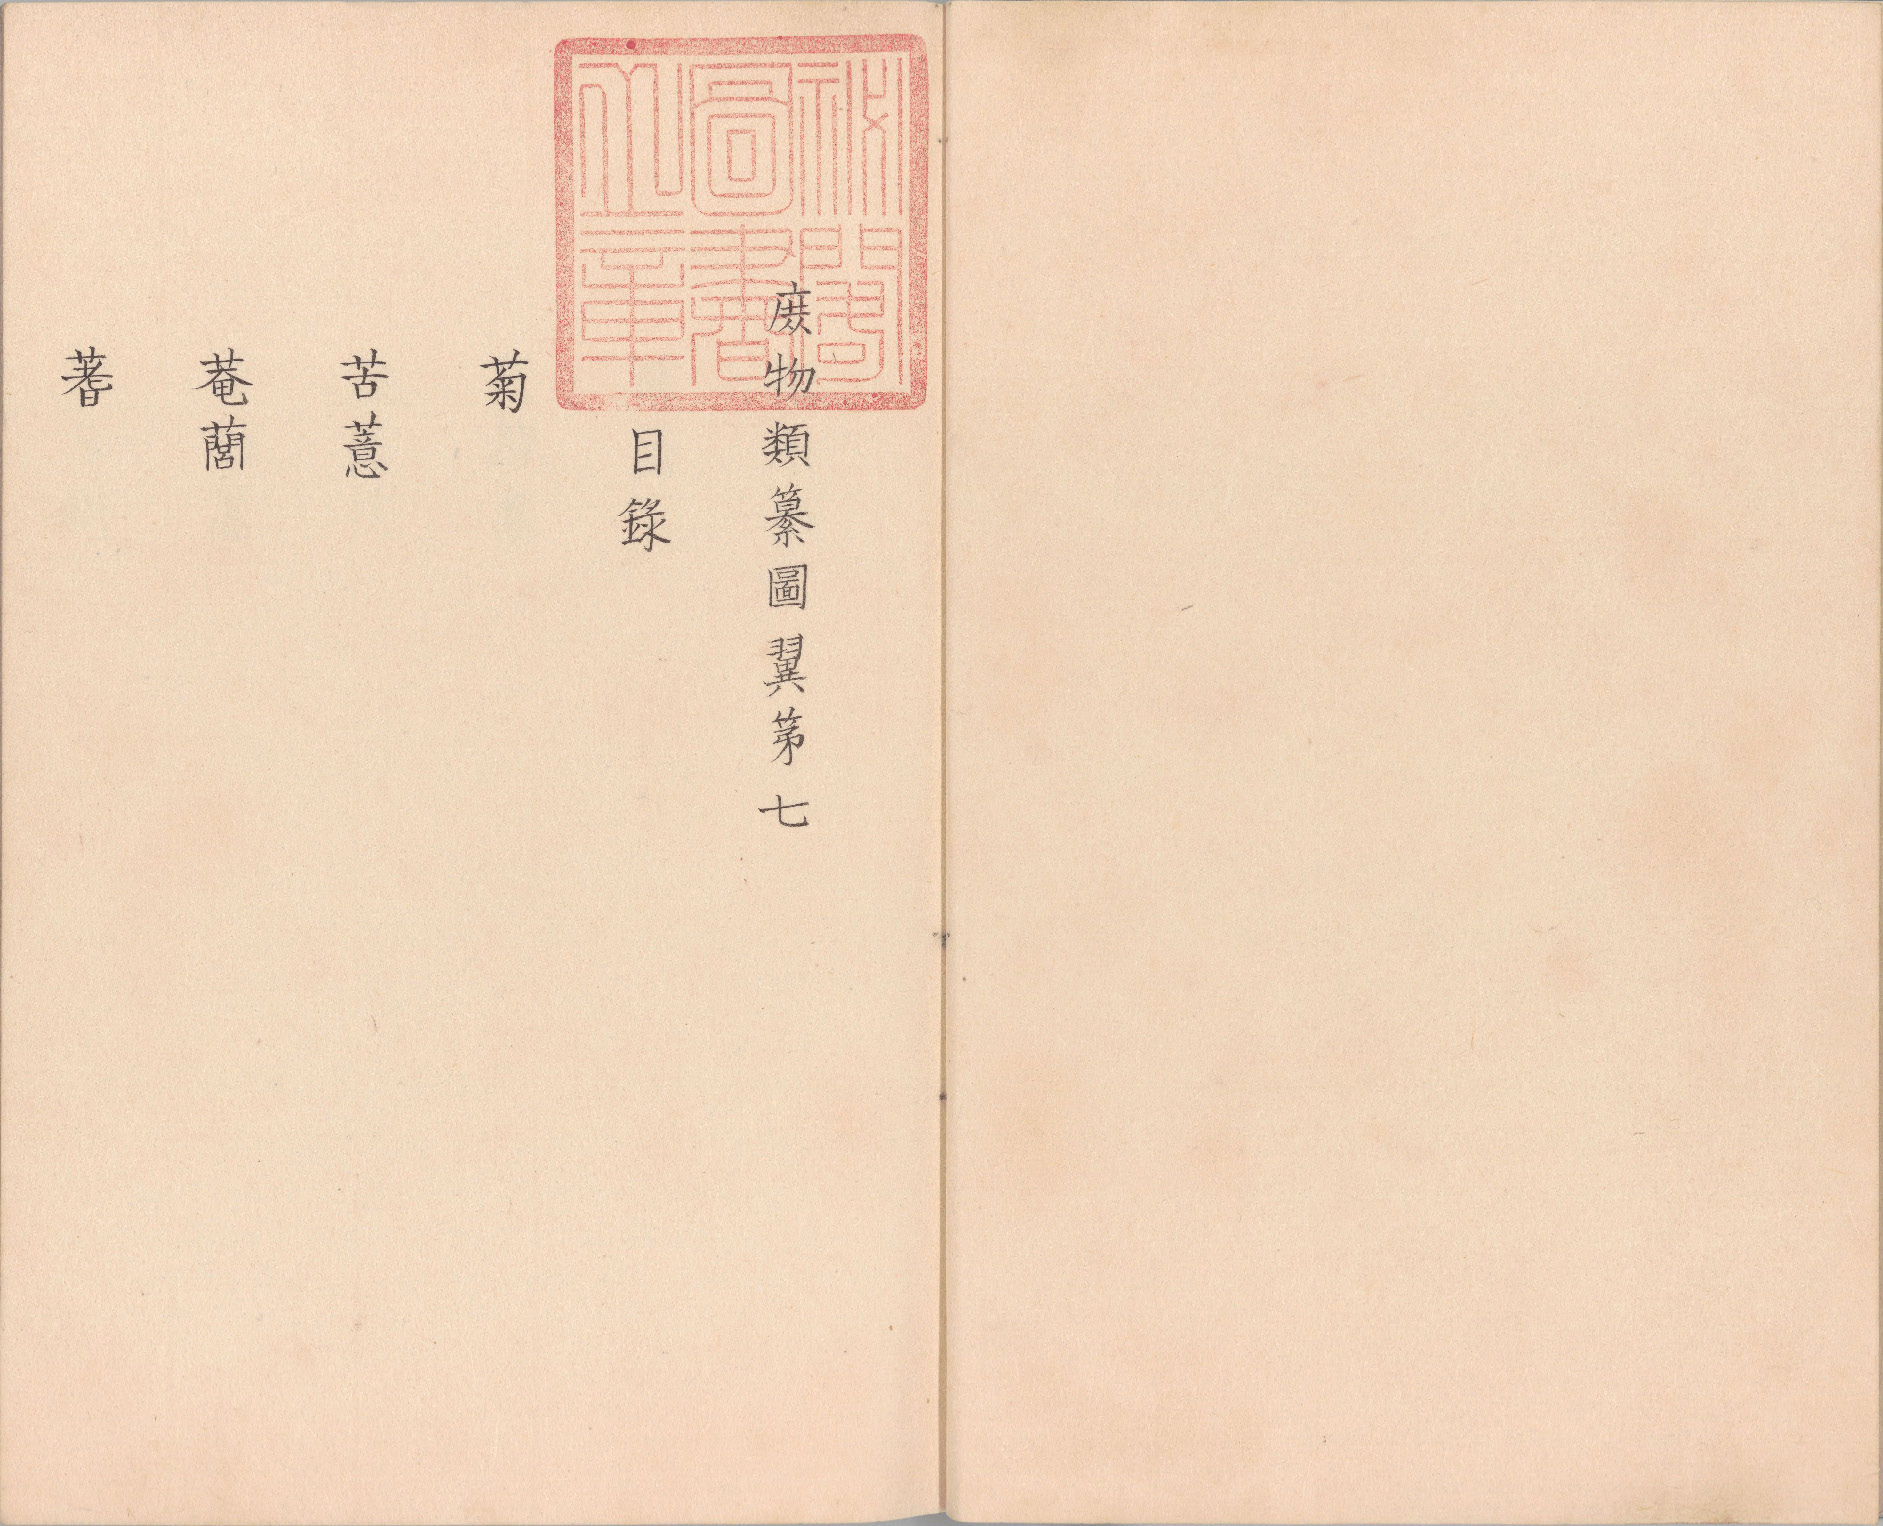 祕閣
圖書
之章
庻物類纂圖翼第七
目錄
菊
苦薏
菴䕡
蓍